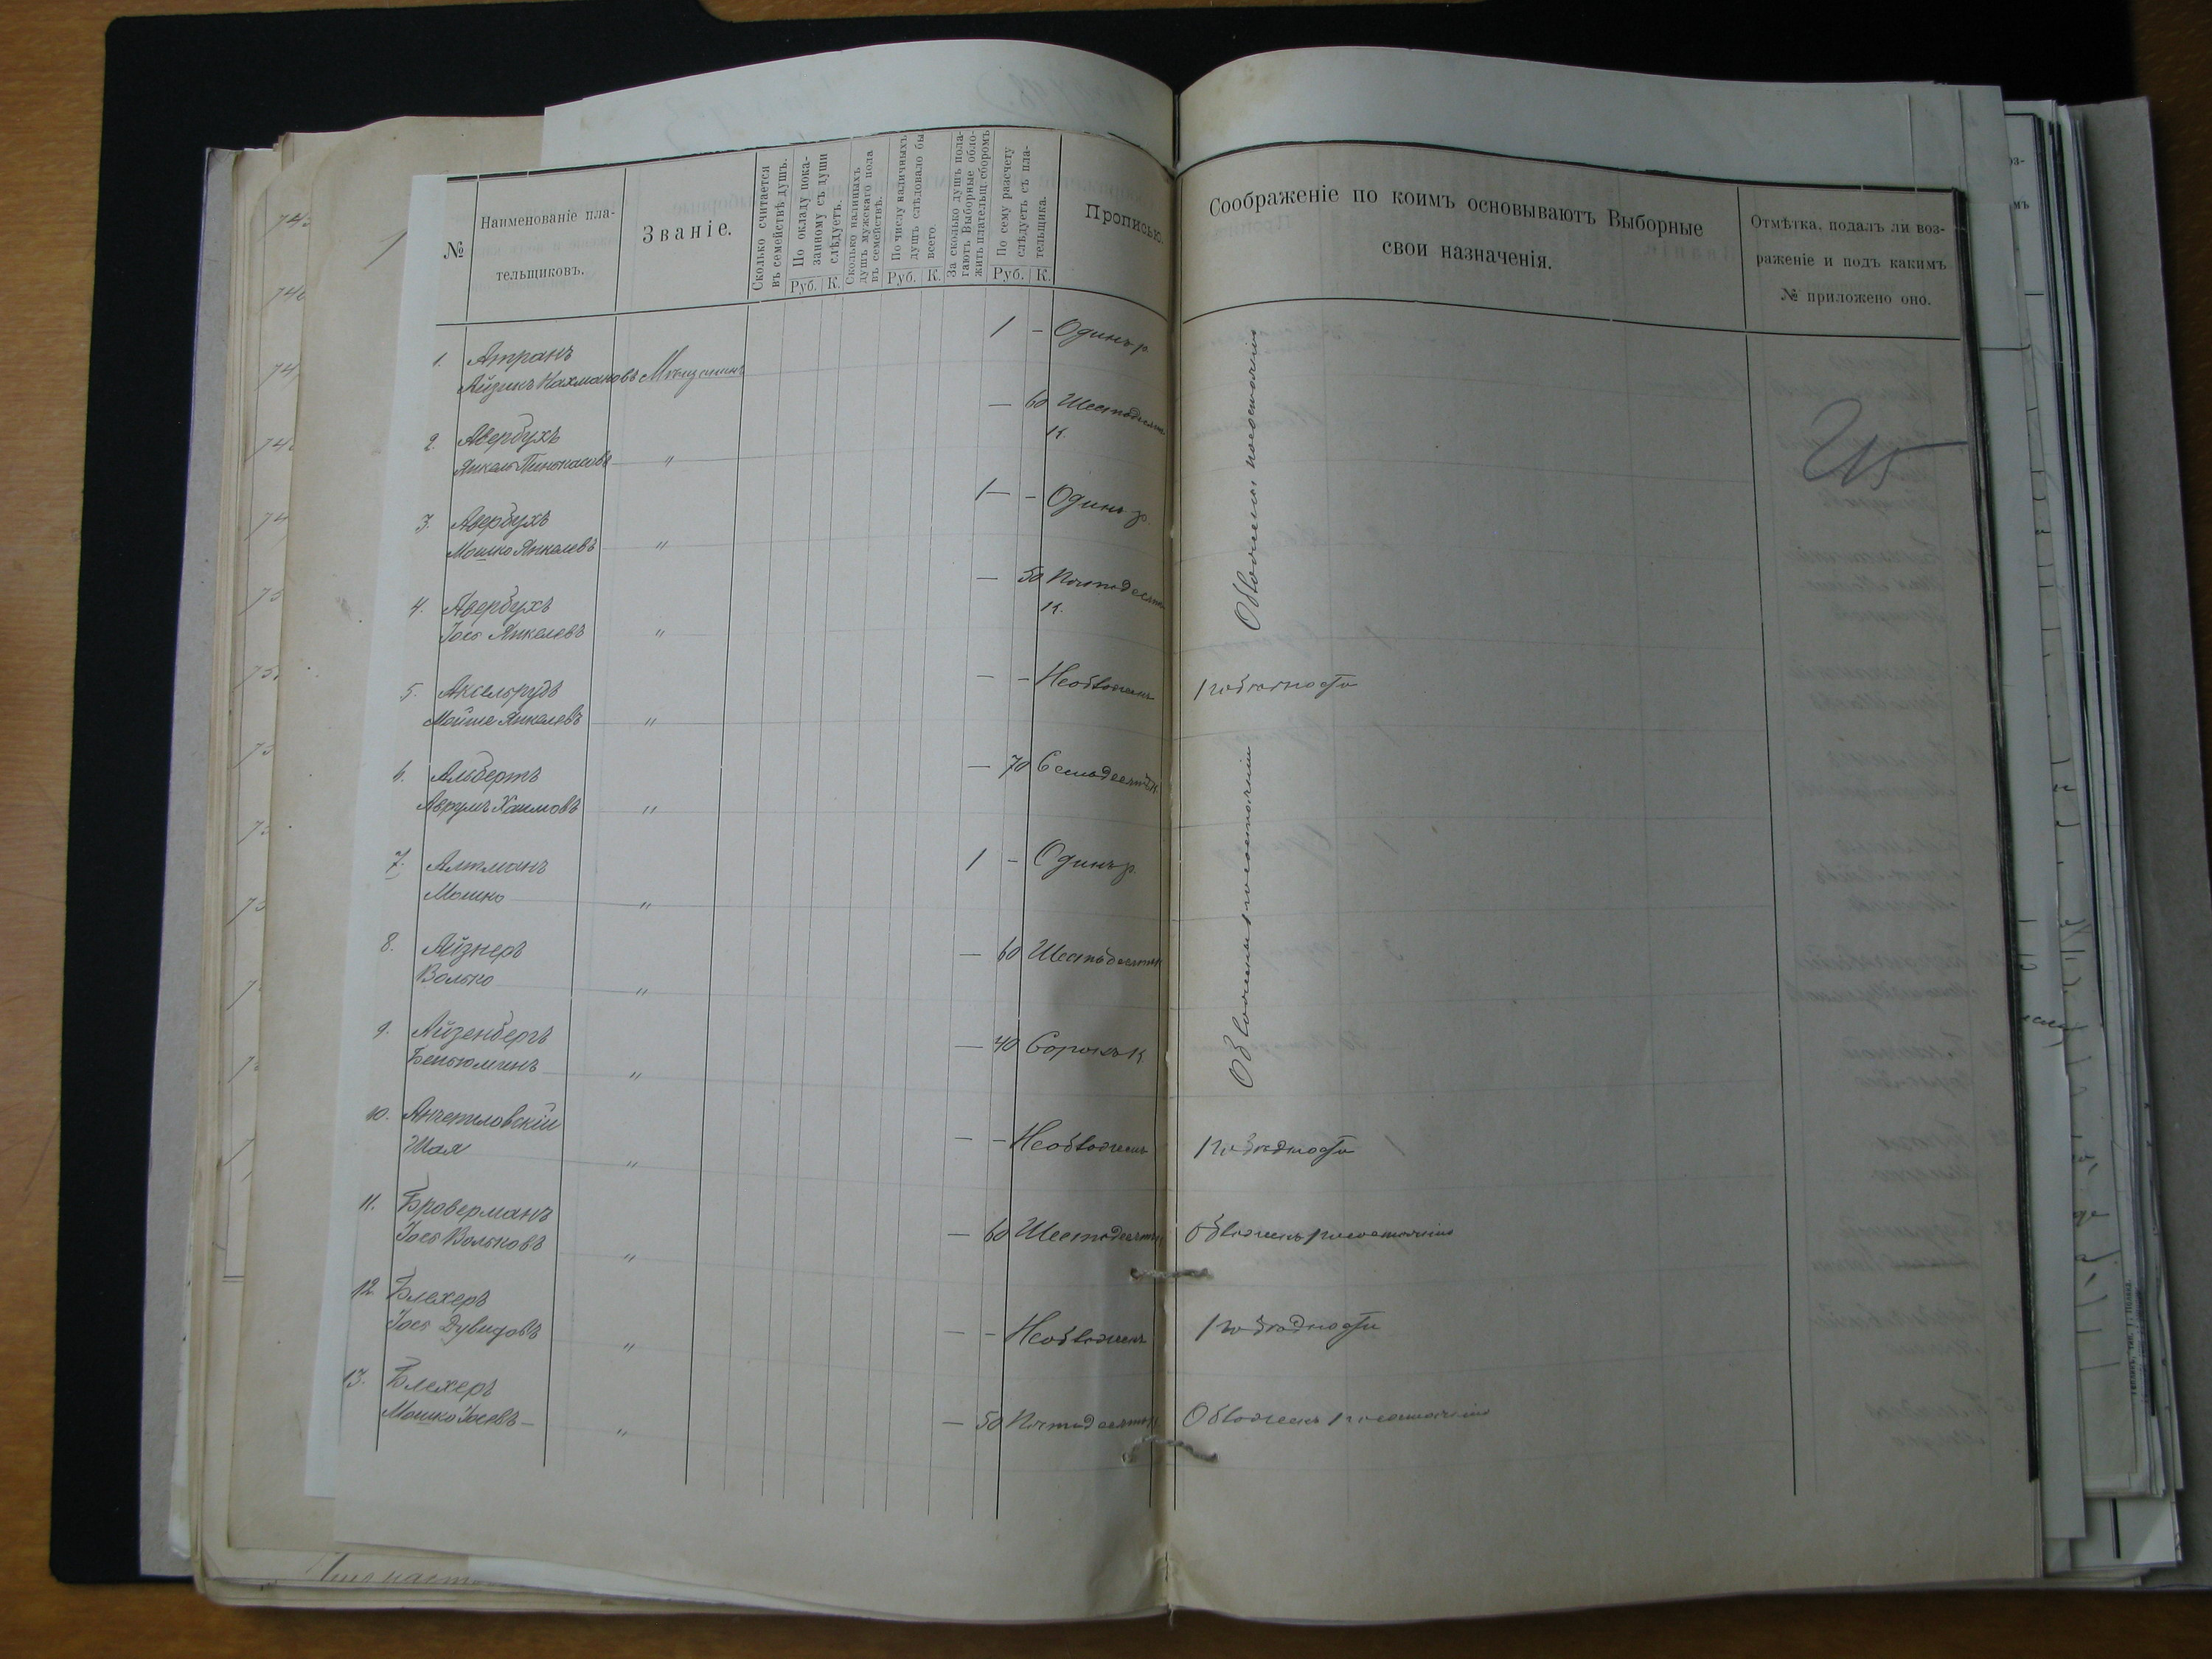 №
Наименованіе пла-
тельщиковъ.
Званіе.
Сколько считается
въ семействѣ душъ.
По окладу пока-
занному съ души
слѣдуетъ.
Руб. К.
Сколько наличныхъ
душъ мужскаго пола
въ семействѣ.
По числу наличныхъ
душъ слѣдовало бы
всего.
Руб. К.
За сколько душъ пола-
гаютъ Выборные обло-
жить плательщ. сборомъ
По сему разсчету
слѣдуетъ съ пла-
тельщика.
Руб. К.
Прописью.
Соображеніе по коимъ основываютъ Выборные
свои назначенія.
Отмѣтка, подалъ ли воз-
раженіе и подъ какимъ
№ приложено оно.
215
1. Атранъ 1 - Одинъ р
Айзикъ Нахмановъ Мѣщанинъ
2. Авербухъ — 60 Шестьдесятъ
Янкель Пинькасовъ " К.
3. Авербухъ 1 — - Одинъ р.
Мошко Янкелевъ "
4. Авербухъ — 50 Пятьдесятъ
Іосъ Янкелевъ " К.
Обложены по состоянію
5. Аксельрудъ — - Необложенъ по бѣдности
Мойше Янкелевъ "
6. Альбертъ — 70 Семьдесятъ К
Аврумъ Хаимовъ "
7. Алтманъ 1 - Одинъ р.
Мошко "
8. Айзнеръ — 60 Шестьдесятъ К
Волько "
9. Айзенбергъ — 40 Сорокъ К
Беньюминъ "
Обложены по состоянію
10. Анчетиловскій — - Необложенъ по бѣдности
Шая "
11. Броверманъ — 60 Шестьдесятъ Обложенъ по состоянію
Іосъ Вольковъ "
12 Блехеръ — - Необложенъ по бѣдности
Іосъ Дувидовъ "
13. Блехеръ — 50 Пятьдесятъ К Обложенъ по состоянію
Мошко Іосевъ — "